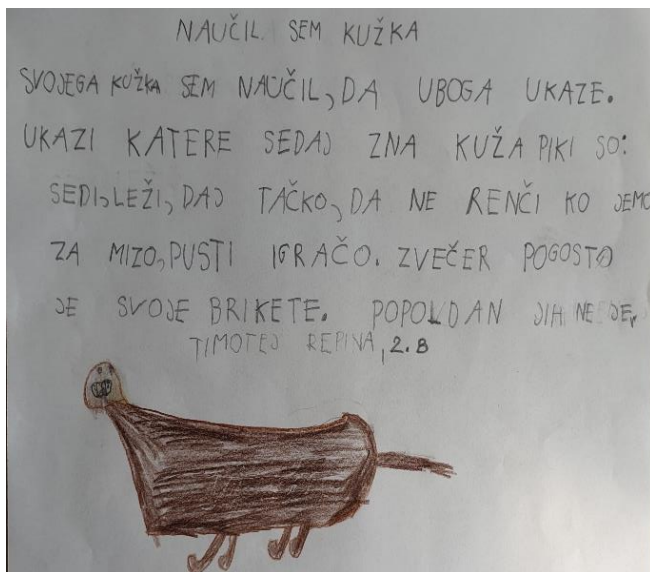 NAUČIL SEM KUŽKA
SVOJEGA KUŽKA SEM NAUČIL, DA UBOGA UKAZE.
UKAZI KATERE SEDAJ ZNA KUŽA PIKI SO:
SEDI, LEŽI, DAJ TAČKO, DA NE RENČI KO JEMO
ZA MIZO, PUSTI IGRAČO. ZVEČER POGOSTO
JE SVOJE BRIKETE. POPOLDAN JIH NE JE.
TIMOTEJ REPINA, 2. B